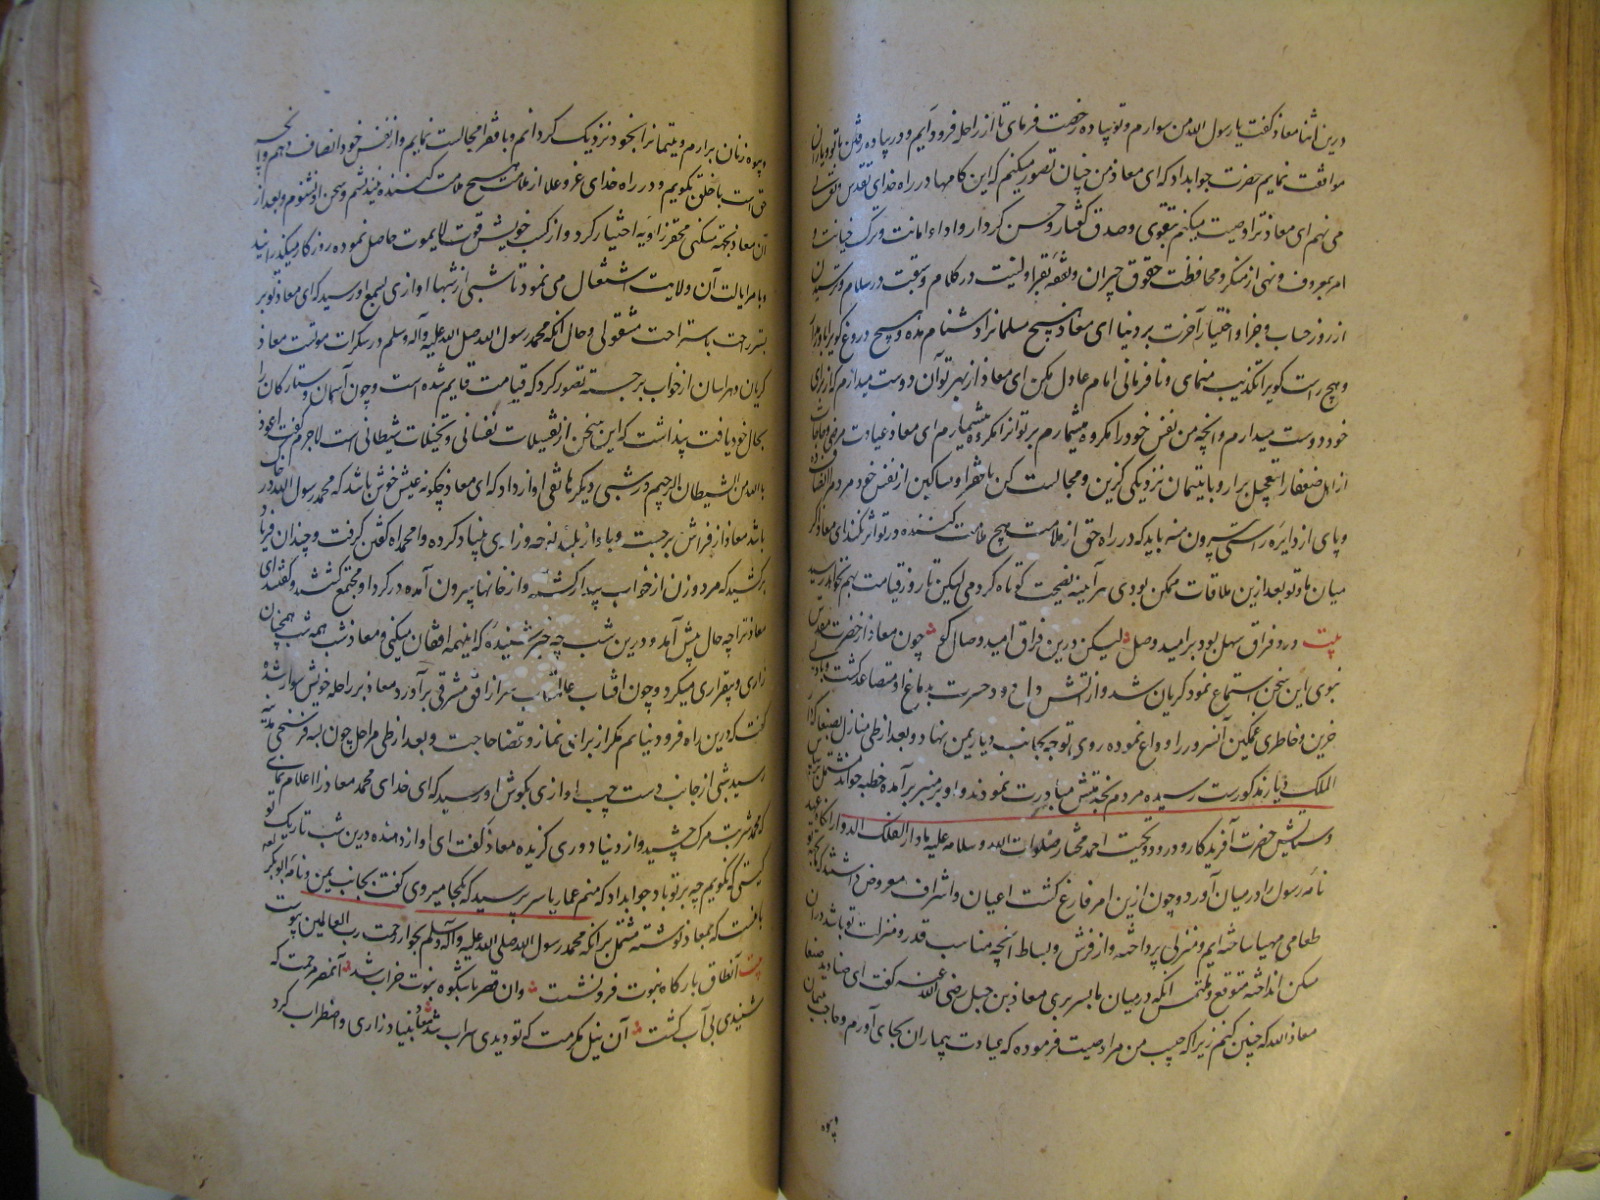 درین اثنا معاذ گفت یا رسول الله من سوارم و تو پیاده رخصت فرمای تا از راحله فرود آیم و در پیاده رفتن با تو و یاران
موافقت نمایم حضرت جواب داد که ای معاذ من چنان تصور میکنم که این کامها در راه خدای تقدس و تعالی
می نهم ای معاذ ترا وصیت میکنم بتقوی و صدق گفتار و حسن کردار و اداء امانت و ترک خیانت و
امر بمعروف و نهی از منکر و محافظت حقوق جیران و نفقه بفقرا و لینت در کلام و سبقت در سلام و ترسیدن
از روز حساب و جزا و اختیار آخرت بر دنیا ای معاذ هیچ مسلمانرا دشنام مده و هیچ دروغ گویرا باور مدار
و هیچ راست گویرا تکذیب منمای و نافرمانی امام عادل مکن ای معاذ از بهر تو آن دوست میدارم که از برای
خود دوست میدارم و آنچه من نفس خود را مکروه میشمارم بر تو آنرا مکروه میشمارم ای معاذ عیادت مرضی و حاجات
از اهل ضعفا را بتعجیل برآر و با یتیمان نزدیکی گزین و مجالست کن با فقرا و مساکین از نفس خود مردم را انصاف ده
و پای از دایره راستی بیرون منه باید که در راه حق از ملامت هیچ ملامت کننده در تو اثر نکند ای معاذ اگر
میان ما و تو بعد ازین ملاقات ممکن بودی هر آینه نصیحت کوتاه کردمی لیکن تا روز قیامت بهم نخواهیم رسید
بیت درد فراق سهل بود بر امید وصل لیکن درین فراق امید وصال کو چون معاذ از حضرت مقدس
نبوی این سخن استماع نمود گریان شد و از آتش دل دود حسرت بدماغ او متصاعد گشت و با دلی
حزین و خاطری غمگین آنسرور را وداع نموده روی توجه بجانب دیار یمن نهاد و بعد از طی منازل بصنعا که دار
الملک دیار مذکورست رسیده مردم بخدمتش مبادرت نمودند و او بر منبر برآمده خطبه خواند مشتمل بر سپاس
و ستایش حضرت آفریدگار و درود و تحیت احمد مختار صلوات الله و سلامه علیه ما دار الفلک الدوار آنگاه عهد
نامه رسول را در میان آورد و چون ازین امر فارغ گشت اعیان و اشراف معروض داشتند که بجهة تو
طعامی مهیا ساخته ایم و منزلی پرداخته و از فرش و بساط آنچه مناسب قدر و منزلت تو باشد در آن
مسکن انداخته متوقع و ملتمس آنکه در میان ما بسر بری معاذ بن جبل رضی الله عنه گفت ای صنادید صنعا
معاذ الله که چنین کنم زیرا که حبیب من مرا وصیت فرموده که عیادت بیماران بجای آورم و حاجب یتیمان
و بیوه
و بیوه زنان برآرم و یتیمانرا بخود نزدیک گردانم و با فقرا مجالست نمایم و از نفس خود انصاف دهم و آنچه
حق است با خلق بگویم و در راه خدای عز و علا از ملامت هیچ ملامت کننده نیندیشم و سخن او نشنوم و بعد از
آن معاذ بجهة سکنی محقر زاویه اختیار کرد و از کسب خویش قوت لایموت حاصل نموده روزگار میگذرانید
و بامر ایالت آن ولایت اشتغال می نمود تا شبی از شبها آوازی بسمع او رسید که ای معاذ تو بر
بستر راحت باستراحت مشغولی و حال آنکه محمد رسول الله صلی الله علیه و آله وسلم در سکرات موتست معاذ
گریان و هراسان از خواب برجسته تصور کرد که قیامت قایم شده است و چون آسمان و ستارگان را
بحال خود یافت پنداشت که این سخن از تخییلات نفسانی و تخیلات شیطانی است لاجرم گفت اعوذ
بالله من الشیطان الرجیم در شبی دیگر هاتفی آواز داد که ای معاذ چگونه عیش خوش باشد که محمد رسول الله در خاک
باشد معاذ از فراش برجست و با آواز بلند نوحه و زاری بنیاد کرده وا محمداه گفتن گرفت و چندان فریاد
برکشید که مرد و زن از خواب بیدار گشته و از خانها بیرون آمده در گرد او مجتمع گشتند و گفتند ای
معاذ ترا چه حال پیش آمد و درین شب چه خبر شنیده که اینهمه افغان میکنی و معاذ شب همه شب همچنان
زاری و بیقراری میکرد و چون آفتاب عالمتاب سر از افق مشرق برآورد معاذ بر راحله خویش سوار شد و
گفت که درین راه فرود نیایم مگر از برای نماز و قضا حاجت و بعد از طی مراحل چون بسه فرسخی مدینه
رسید شبی از جانب دست چپ آوازی بگوش او رسید که ای خدای محمد معاذ را اعلام نمای
که محمد شربت مرگ چشید و از دنیا دوری گزید معاذ گفت ای آواز دهنده درین شب تاریک تو
کیستی که بگویم چه بر تو باد جواب داد که منم عمار یاسر پرسید که کجا میروی گفت بجانب یمن و نامه ابوبکر
با منست که بمعاذ نوشته مشتمل بر آنکه محمد رسول الله صلی الله علیه و آله وسلم بجوار رحمت رب العالمین پیوست
بیت آنطاق بارگاه نبوت فرو نشست وان قصر با شکوه نبوت خراب شد آنبحر مرحمت که
شنیدی بی آب گشت آن نیل مکرمت که تو دیدی سراب شد معاذ بنیاد زاری و اضطراب کرد